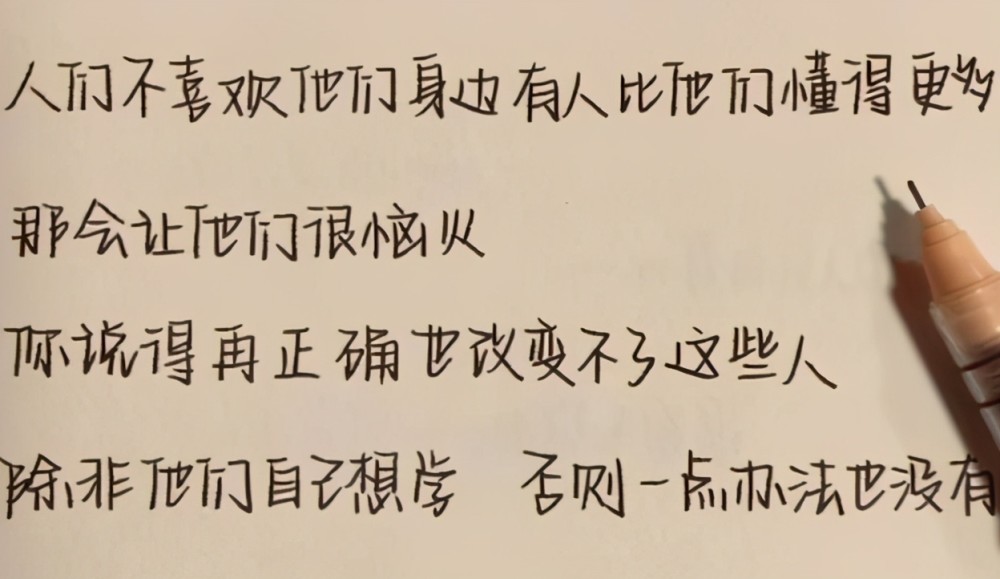 人们不喜欢他们身边有人比他们懂得更多
那会让他们很恼火
你说得再正确也改变不了这些人
除非他们自己想学 否则一点办法也没有